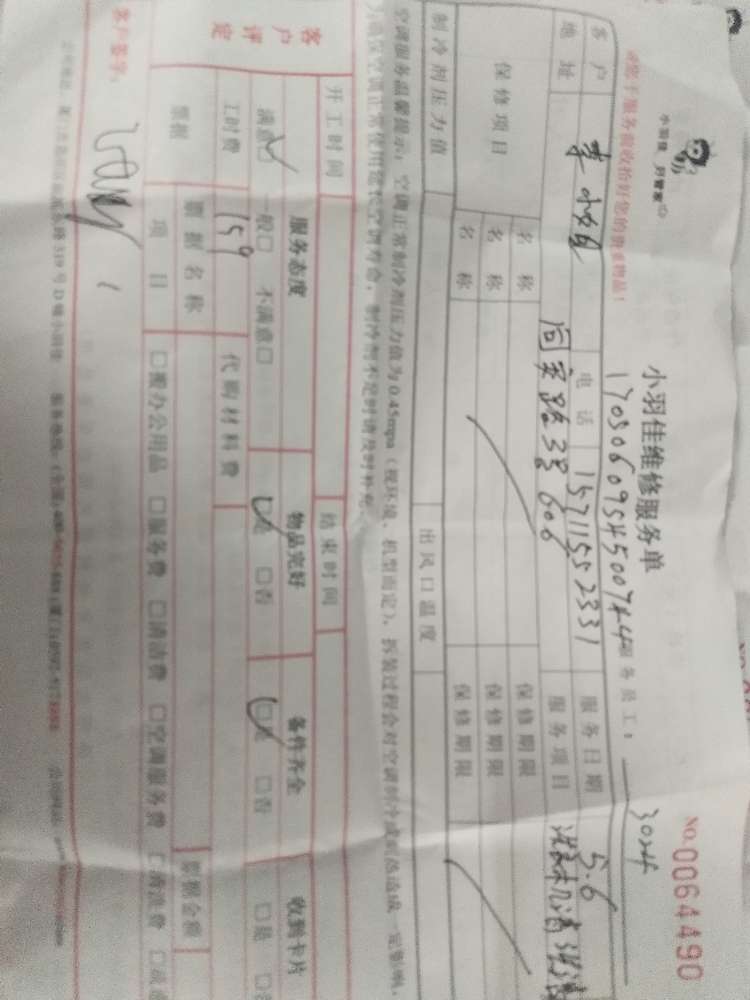 小羽佳 好管家
小羽佳维修服务单
NO.0064490
1705060954500744
服务员工：3024
客户 李小姐 电话 15711552331 服务日期 5.6
地址 同安路38 606 服务项目 洗衣机清洗
保修项目 名称 保修期限
名称 保修期限
名称 保修期限
制冷剂压力值 出风口温度
空调服务温馨提示：空调正常制冷剂压力值为0.45mpa（视环境、机型而定），拆装过程会对空调制冷或制热造成一定影响，
为确保空调正常使用延长空调寿命，制冷剂不足时请及时补充
开工时间 结束时间
客户评定 服务态度 物品完好 备件齐全 收到卡片
满意□ 一般□ 不满意□ □是 □否 □是 □否 □是
工时费 159 代购材料费
票据 票据名称 票据金额
项目 □搬办公用品 □服务费 □清洁费 □空调服务费 □清洗费
客户签字：